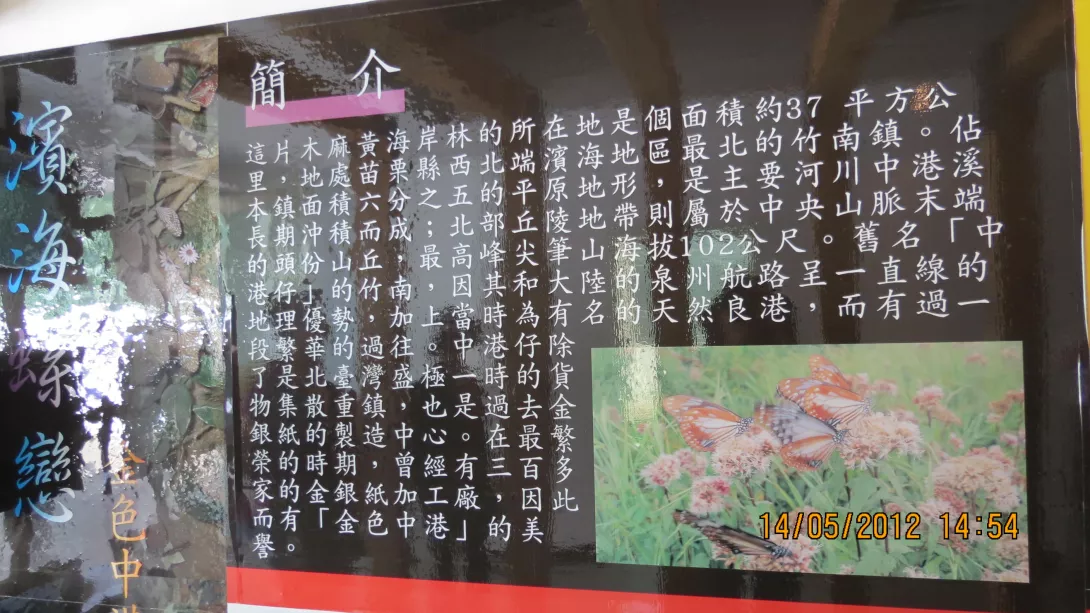 濱海蹀戀
金色中港
簡 介
這片木麻黃海岸林的所在地是個面積約37平方公
里,地處苗栗縣西北端濱海地區,最北的竹南鎮。佔
本鎮面積六分之五的平原地形,是主要河川中港溪
長期沖積而成;北部丘陵地帶則屬於中央山脈末端
的頭份山丘,最高峰尖筆山海拔102公尺。舊名「中
港仔」的竹南,因其和大陸的泉州航路呈一直線的
地理優勢,加上當時為有名的天然良港,而有過一
段繁華的過往。中港仔除
了是北臺灣盛極一時的貨
物集散重鎮,也是過去金
銀紙的製造中心。在最繁
榮的時期,曾經有三百多
家的金銀紙加工廠,因此
而有「金色中港」的美
譽。
14/05/2012 14:54